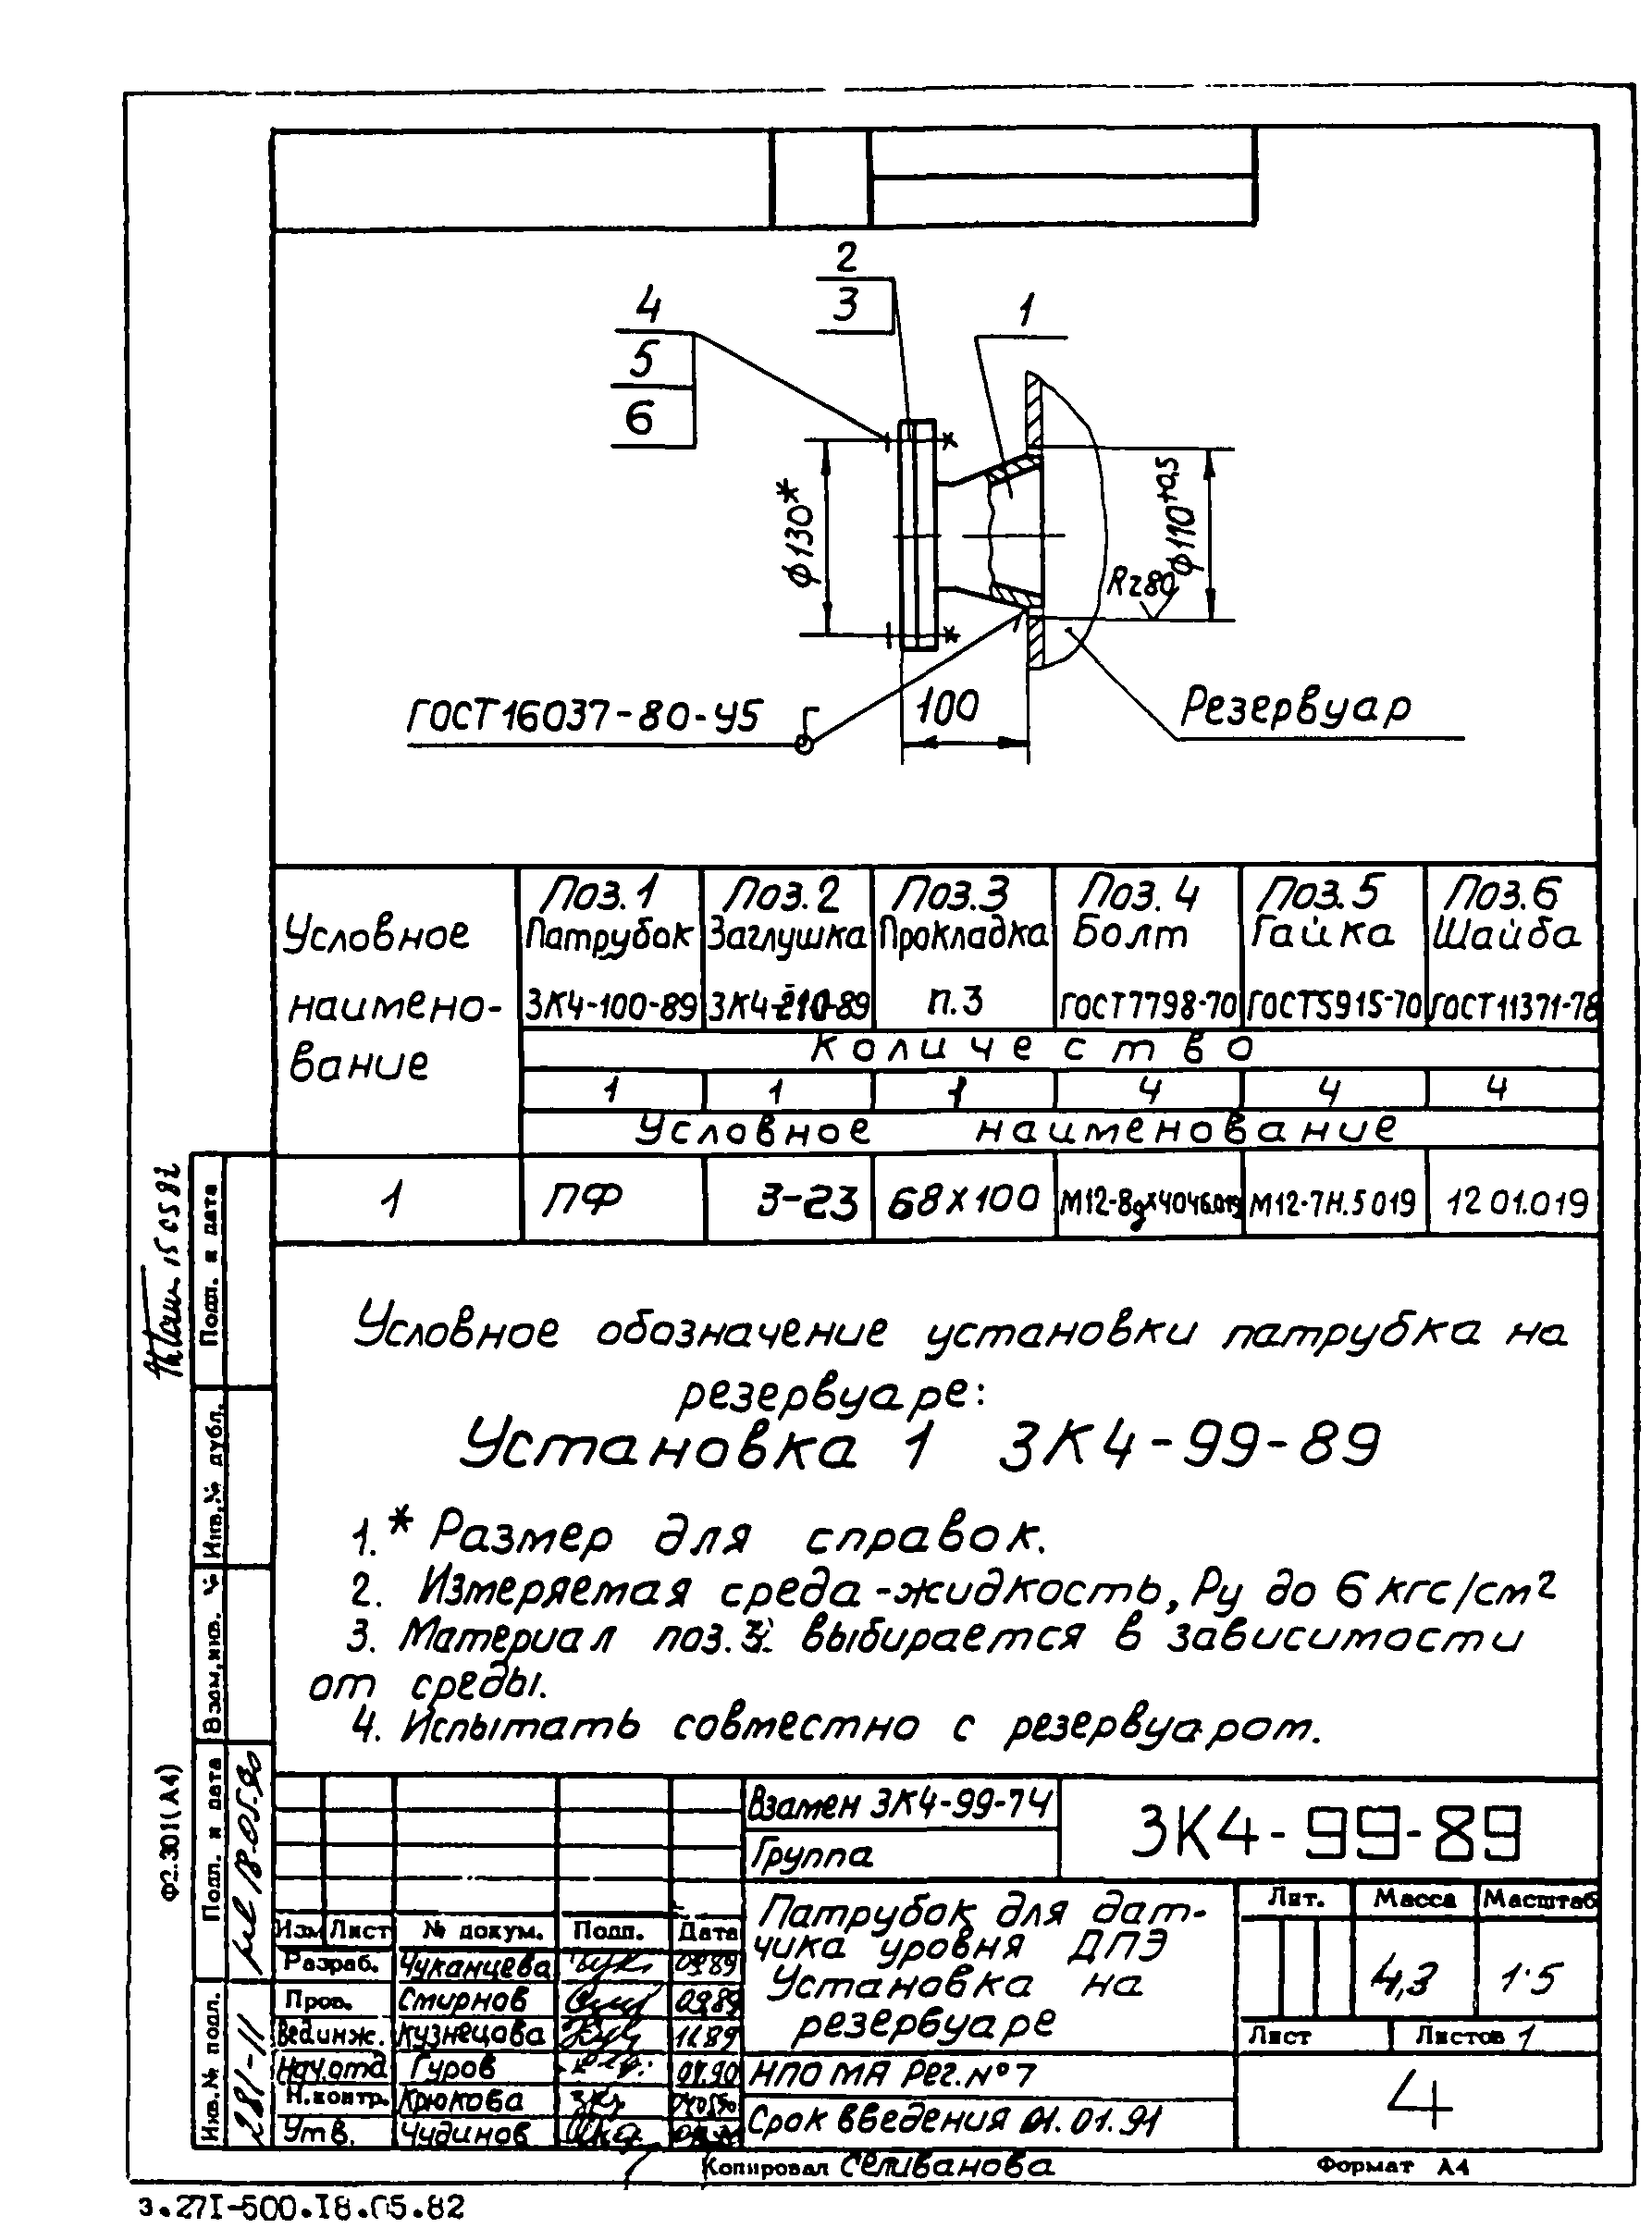 2
3
4
5
6
1
ϕ130*
ϕ110+0,5
Rz80
ГОСТ16037-80-У5
100
Резервуар
Условное наимено-вание
Поз.1 Патрубок ЗК4-100-89
Поз.2 Заглушка ЗК4-210-89
Поз.3 Прокладка п.3
Поз.4 Болт ГОСТ7798-70
Поз.5 Гайка ГОСТ5915-70
Поз.6 Шайба ГОСТ11371-78
Количество
1 1 1 4 4 4
Условное наименование
1 ПФ 3-23 68х100 М12-8gх40 46.019 М12-7Н.5 019 12 01.019
Условное обозначение установки патрубка на
резервуаре:
Установка 1 ЗК4-99-89
1.* Размер для справок.
2. Измеряемая среда-жидкость, Ру до 6 кгс/см2
3. Материал поз.3 выбирается в зависимости
от среды.
4. Испытать совместно с резервуаром.
Подп. и дата
Инв.№ дубл.
Взам.инв. №
Подп. и дата
18.05.90
Инв.№ подл.
281-11
Ф2.301(А4)
15 05 82
Взамен ЗК4-99-74
Группа
ЗК4-99-89
Изм Лист № докум. Подп. Дата
Разраб. Чуканцева 09.89
Пров. Смирнов 09.89
Вед.инж. Кузнецова 11.89
Нач.отд Гуров 01.90
Н.контр. Крюкова
Утв. Чудинов
Патрубок для дат-
чика уровня ДПЭ
Установка на
резервуаре
Лит. Масса Масштаб
4,3 1:5
Лист Листов 1
НПО МА Рег.№7
Срок введения 01.01.91
4
Копировал Селиванова
Формат А4
з.271-500.18.05.82